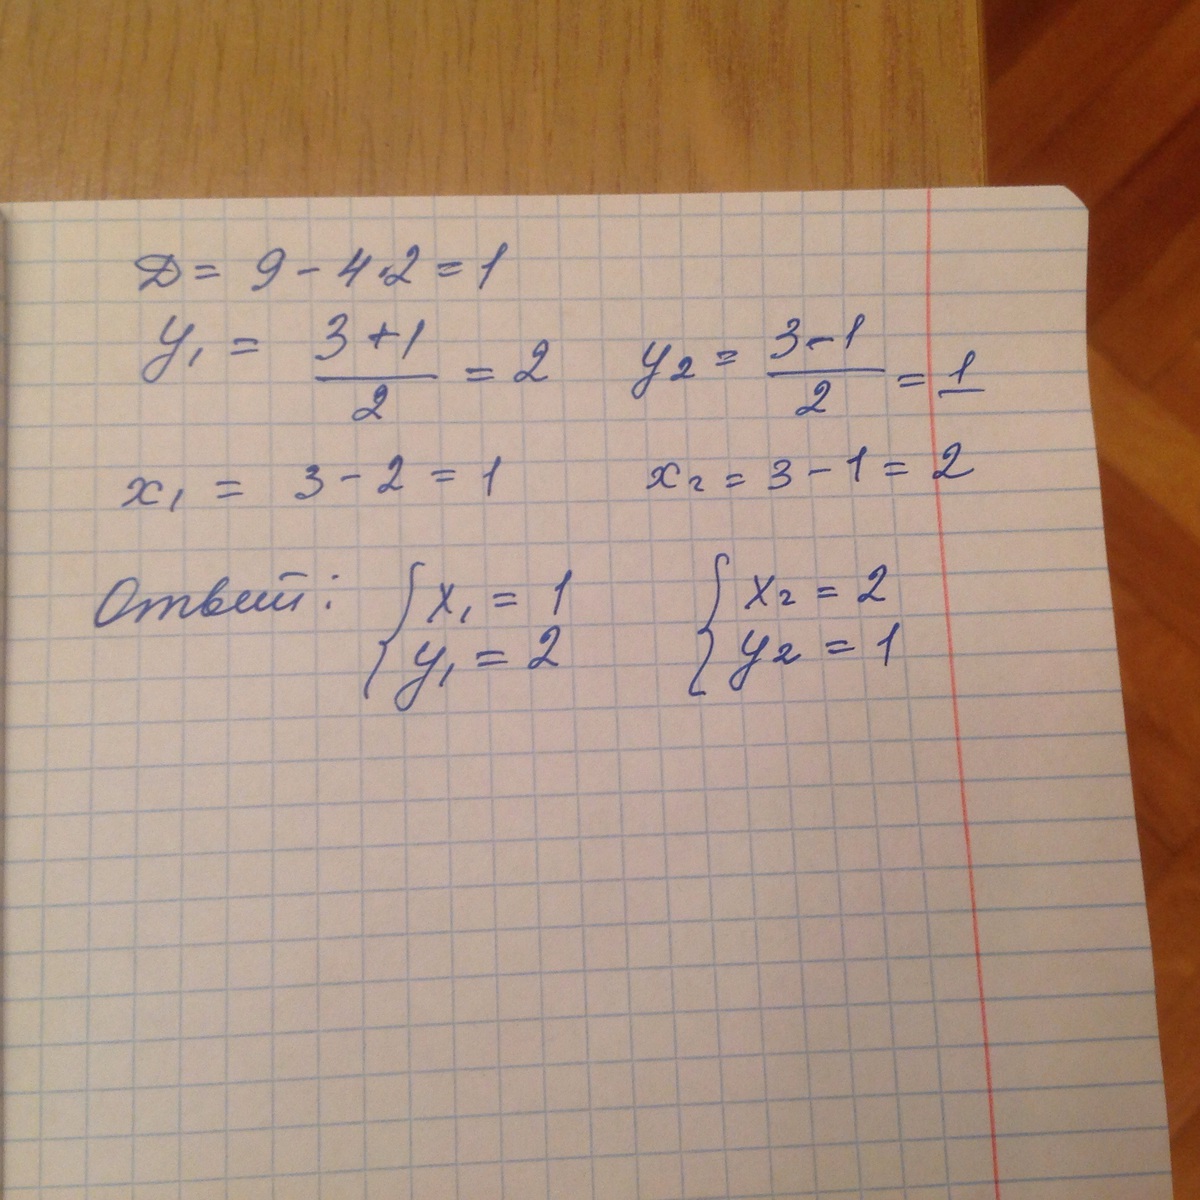 D = 9 - 4·2 = 1
y₁ = (3+1)/2 = 2    y₂ = (3-1)/2 = 1
x₁ = 3 - 2 = 1    x₂ = 3 - 1 = 2
Ответ: { x₁ = 1    { x₂ = 2
y₁ = 2    y₂ = 1